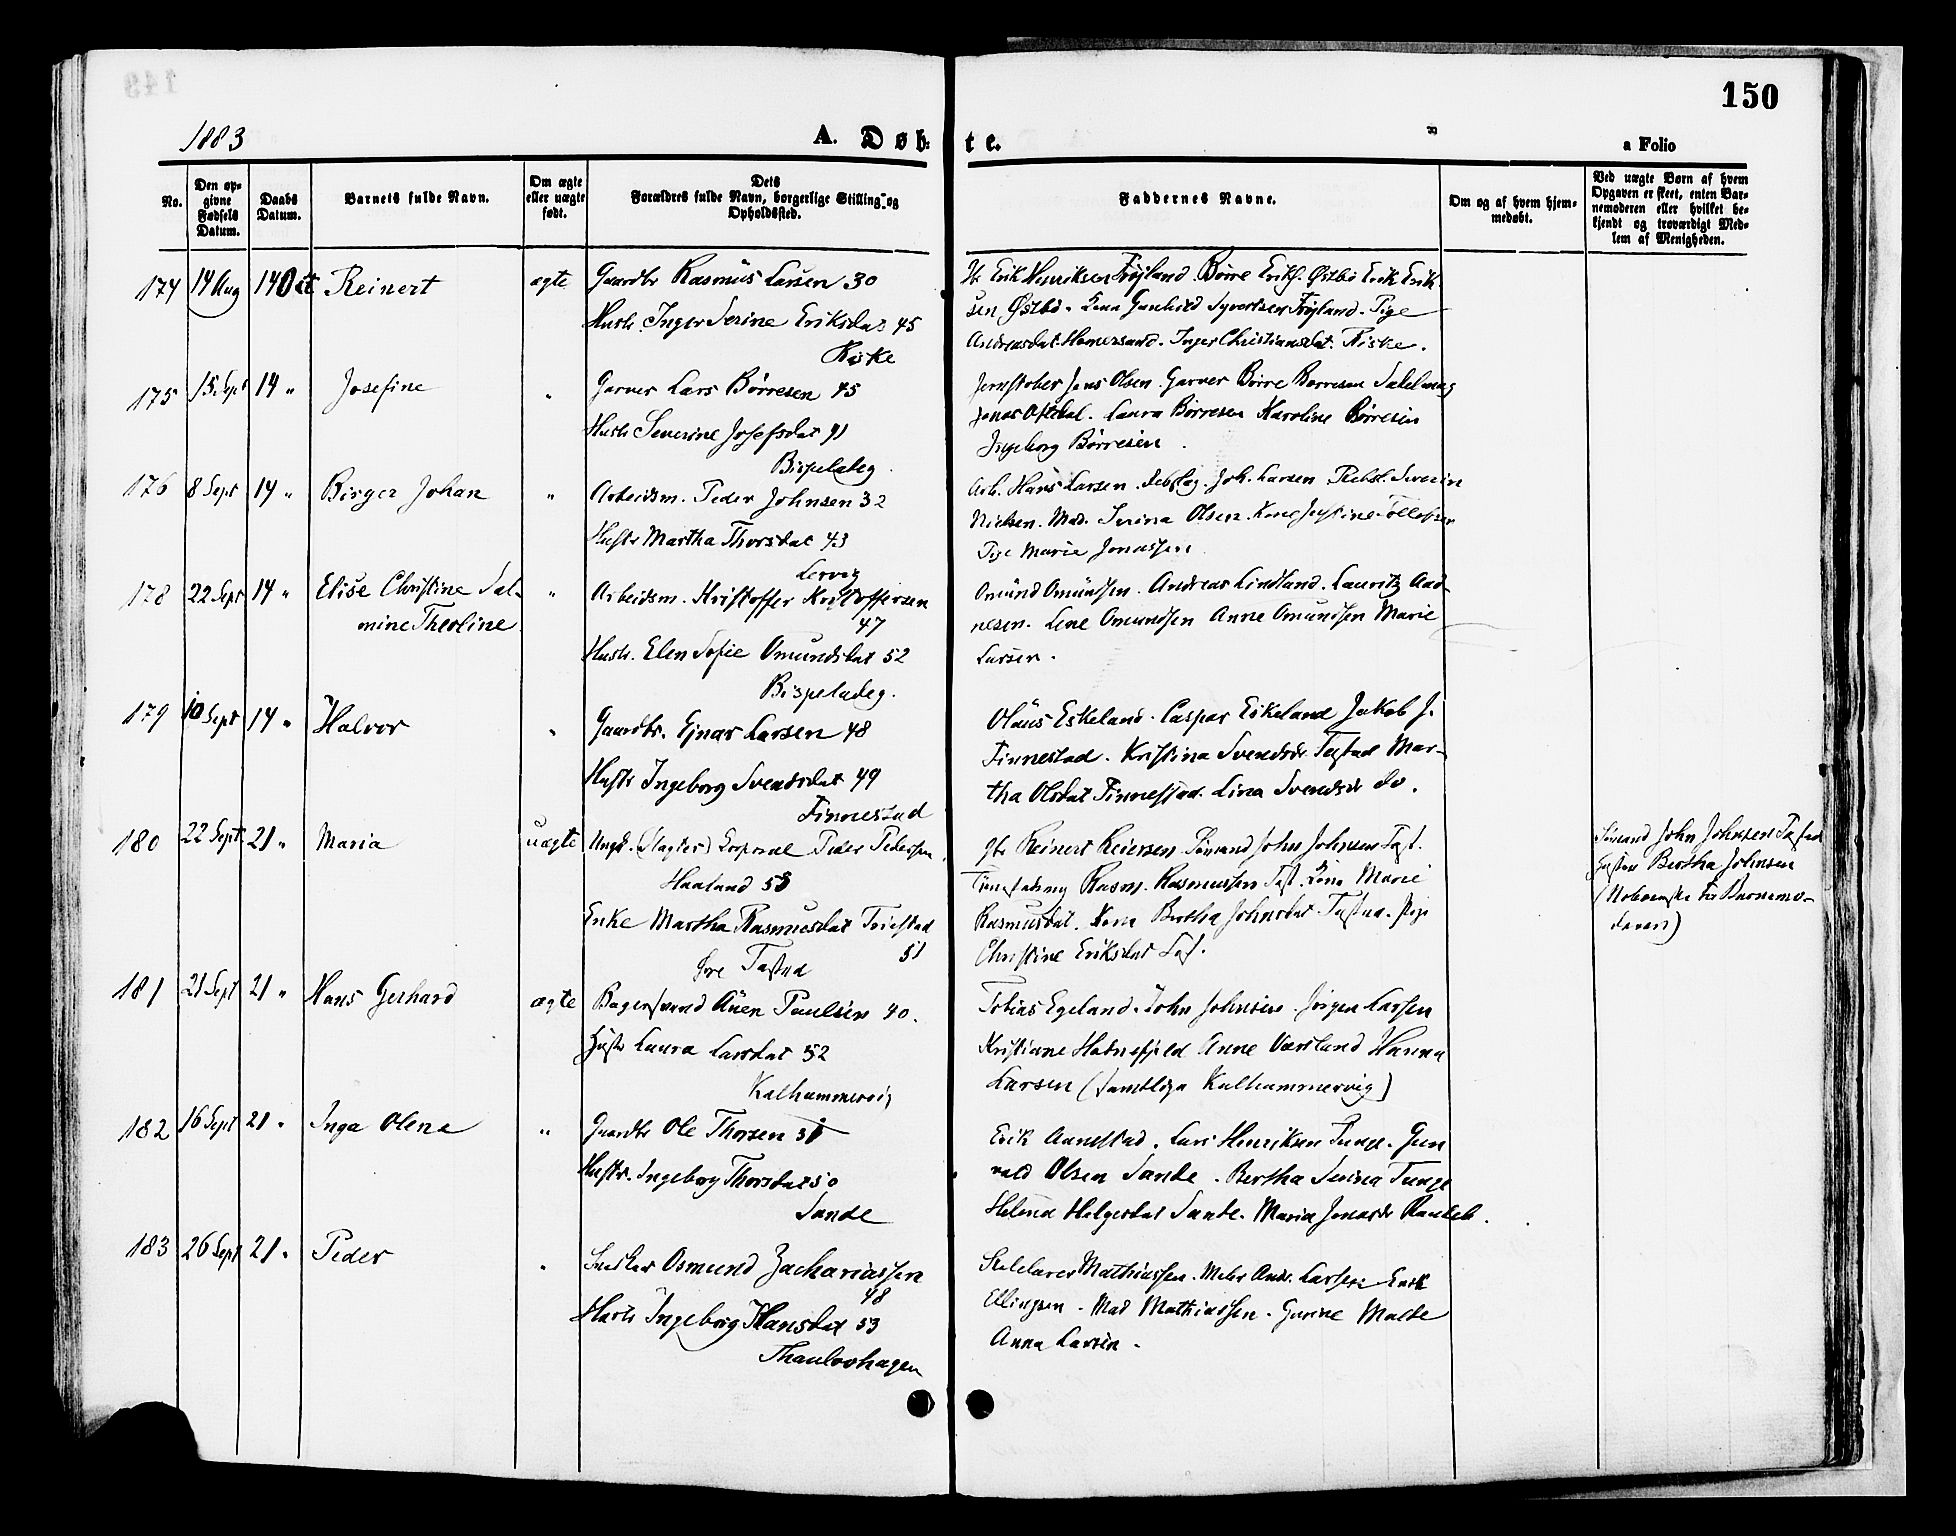 150
1883 A. Døb- te. a Folio
No.
Den op-
givne
Fødsels
Datum.
Daabs
Datum.
Barnets fulde Navn.
Om ægte
eller uægte
født.
Dets
Forældres fulde Navn, borgerlige Stilling og
Opholdssted.
Faddernes Navne.
Om og af hvem hjem-
medøbt.
Ved uægte Børn af hvem
Opgaven er skeet, enten Bar-
nemoderen eller hvilket be-
kjendt og troværdigt Med-
lem af Menigheden.
174 14 Aug 14 Oct Reinert ægte Gaardbr Rasmus Larsen 30
Hustr. Inger Serine Eriksdat 45
Kiske
Erik Henriksen Frøjland Børre Eriks. Østbø Erik Erik-
sen Østbø. Gunhild Syvertsen Frøjland. Pige
Andreasdat. Homersand. Inger Christiansdat. Riske.
175 15 Sept 14 " Josefine " Garver Lars Børresen 45
Hustr Severine Josefsdat 41
Bispeladeg.
Jens Olsen. Garver Børre Børresen
Jonas Laura Børresen Karoline Børresen
Ingeborg Børresen
176 8 Sept 14 " Birger Johan " Arbeidsm. Peder Johnsen 32
Hustr Martha Thorsdat 43
Lervig
Arb. Hans Larsen. Joh. Larsen Rebsl. Severin
Nielsen. Mad. Serina Olsen. Kone Justine Tollefsen
Pige Marie Jonassen
178 22 Sept 14 " Elise Christine Sal-
mine Theoline
" Arbeidsm. Kristoffer Kristoffersen
47
Hustr. Elen Sofie Omundsdat 52
Bispeladeg.
Omund Omundsen. Andreas Lindland. Lauritz Aad-
nesen. Lene Omundsen Anne Omundsen Marie
Larsen.
179 10 Sept 14 " Halvor " Gaardbr. Ejnar Larsen 48
Hustr Ingeborg Svendsdat 49
Finnestad
Olaus Eskeland. Caspar Eskeland Jakob J.
Finnestad. Kristina Svendsdr Tastad Mar-
tha Olsdat Finnestad. Lina Svendsdr do.
180 22 Sept. 21 " Maria uægte Ungk. (Slagter) Corporal Peder Pedersen
Haaland 53
Enke Martha Rasmusdat
51
Øvre Tastad
Gbr Reinert Reiersen Sømand John Johnsen Tast.
Rasm. Rasmussen Tast. Marie
Rasmusdat. Kone Bertha Johnsdat Tastad. Pige
Christine Eriksdat Tast.
Sømand John Johnsen Tastad
Hustru Bertha Johnsen
181 21 Sept 21 " Hans Gerhard ægte Bagersvend Auen Paulsen 40.
Hustr Laura Larsdat 52
Kalhammervig
Tobias Egeland. John Johnsen. Jørgen Larsen
Kristiane Hadnefjeld Anne Værsland Hanna
Larsen (samtlige Kalhammervig)
182 16 Sept 21 " Inga Olena " Gaardbr Ole Thorsen 51
Hustr. Ingeborg Thorsdat 50
Sande
Erik Aanestad. Lars Henriksen Tunge. Gun-
vald Olsen Sande. Bertha Serina Tunge
Helena Helgesdat Sande. Maria Jonasdr
183 26 Sept 21 " Peder " Snedker Osmund Zachariassen
48
Hustr Ingeborg Hansdat 53
Thaulowhagen
Mathiassen. Maler Andr. Larsen Enok
Ellingsen. Mad Mathiassen. Gurine Malde
Anna Larsen.